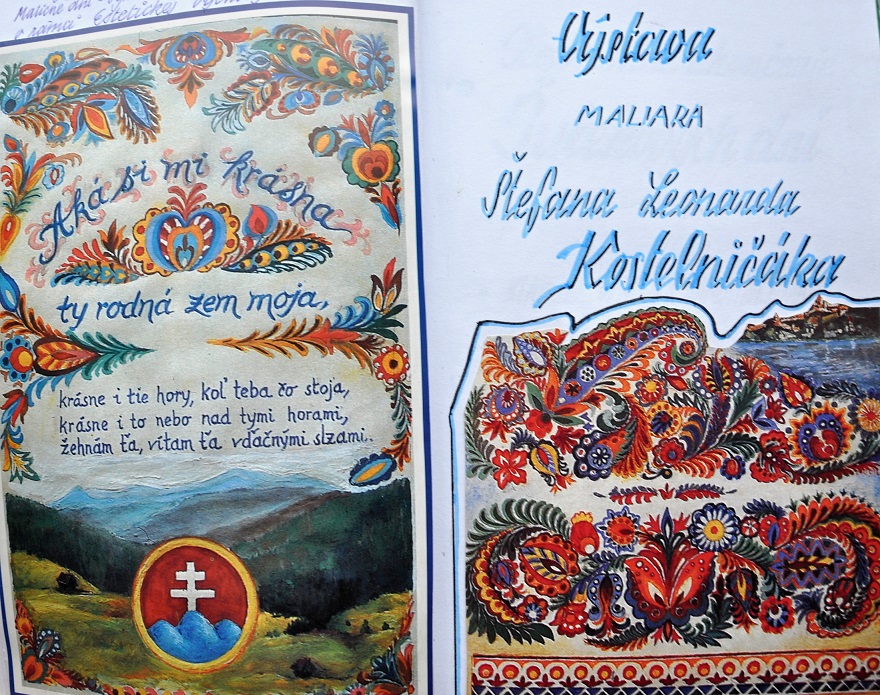 Maľučné dni
v rámci Estetickej výchovy
Aká si mi krásna
ty rodná zem moja,
krásne i tie hory, kol' teba čo stoja,
krásne i to nebo nad tymi horami,
žehnám ťa, vítam ťa vďačnými slzami..
Výstava
MALIARA
Štefana Leonarda
Kostelničáka